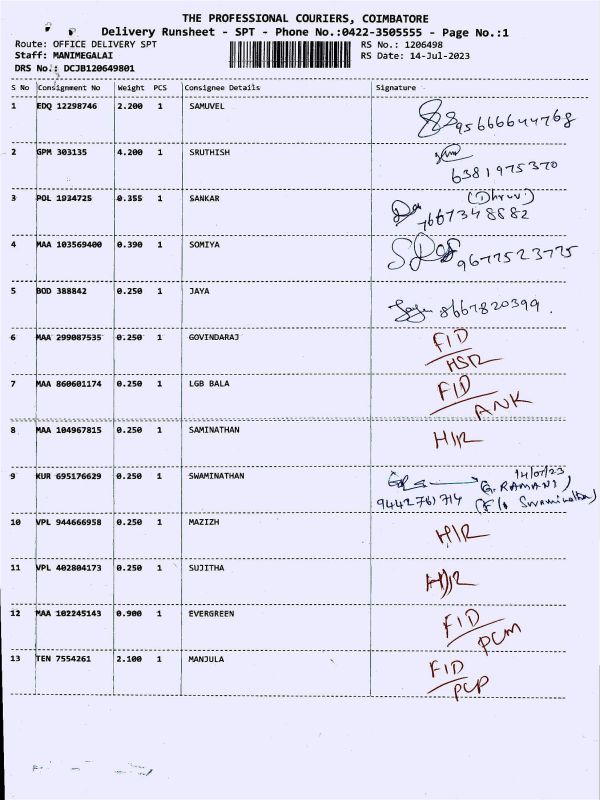 THE PROFESSIONAL COURIERS, COIMBATORE
Delivery Runsheet - SPT - Phone No.:0422-3505555 - Page No.:1
Route: OFFICE DELIVERY SPT RS No.: 1206498
Staff: MANIMEGALAI RS Date: 14-Jul-2023
DRS No.: DCJB120649801
S No Consignment No Weight PCS Consignee Details Signature
1 EDQ 12298746 2.200 1 SAMUVEL
95666644768
2 GPM 303135 4.200 1 SRUTHISH
6381975370
3 POL 1934725 0.355 1 SANKAR (Dhruv)
7667348882
4 MAA 103569400 0.390 1 SOMIYA
9677523775
5 BOD 388842 0.250 1 JAYA
8667820399
6 MAA 299087535 0.250 1 GOVINDARAJ FID
HSR
7 MAA 860601174 0.250 1 LGB BALA FID
ANK
8 MAA 104967815 0.250 1 SAMINATHAN HIR
9 KUR 695176629 0.250 1 SWAMINATHAN 14/07/23
G. RAMANI)
9442761714 (F/o Swaminathan)
10 VPL 944666958 0.250 1 MAZIZH HIR
11 VPL 402804173 0.250 1 SUJITHA HIR
12 MAA 102245143 0.900 1 EVERGREEN FID
PCM
13 TEN 7554261 2.100 1 MANJULA FID
PCP